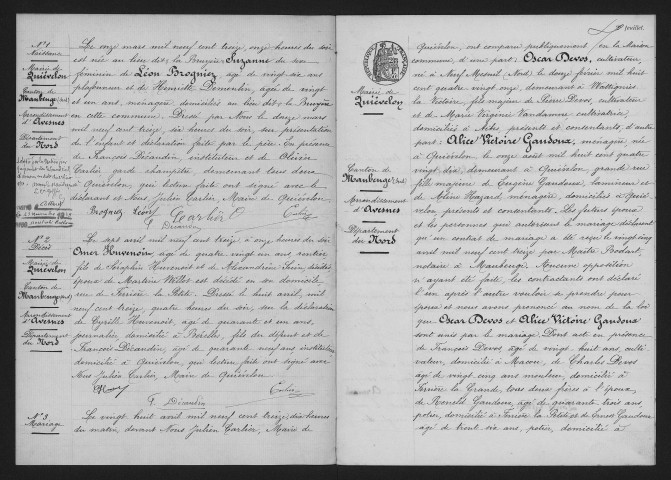 N° 1
Naissance
Mairie de
Quiévelon
Canton de
Maubenge (Sud)
Arrondissement
d'Avesnes
Département
du Nord
Le onze mars mil neuf cent treize, onze heures du soir
est née au lieu dit: la Bruyère Suzanne du sexe
féminin de Léon Brognier, âgé de vingt-six ans
et de Henriette, âgée de vingt
et un ans, ménagère, domiciliés au lieu dit: la Bruyère
en cette commune. Dressé par Nous le douze mars
mil neuf cent treize, six heures du soir, sur présentation
de l'enfant et déclaration faite par le père. En présence
de François Décaudin, instituteur et de Olivier
Carlier, garde champêtre, demeurant tous deux
à Quiévelon, qui lecture faite ont signé avec le
déclarant et Nous Julien Carlier, Maire de Quiévelon.
Brognier Léon Carlier O Carlier
F. Décaudin
N° 2
Décès
Mairie de
Quiévelon
Canton de
Maubeuge (Sud)
Arrondissement
d'Avesnes
Département
du Nord
Le sept avril mil neuf cent treize, à onze heures du soir
Omer Huvenoit, âgé de quatre vingt un ans, rentier
fils de Séraphin Huvenoit et de Alexandrine
époux de Martine Willot est décédé en son domicile
rue de Ferrière la Petite. Dressé le huit avril, mil
neuf cent treize, quatre heures du soir, sur la déclaration
de Cyrille Huvenoit, âgé de quarante et un ans,
journalier domicilié à, fils du défunt et de
François Décaudin, âgé de quarante neuf ans, instituteur
domicilié à Quiévelon, qui lecture faite ont signé avec
Nous Julien Carlier, Maire de Quiévelon.
Carlier
F. Décaudin
N° 3
Mariage
Le vingt huit avril mil neuf cent treize, dix heures
du matin, devant Nous Julien Carlier, Maire de
feuillet.
Mairie de
Quiévelon
Canton de
Maubeuge (Sud)
Arrondissement
d'Avesnes
Département
du Nord
Quiévelon, ont comparu publiquement en la maison
commune, d'une part: Oscar Devos, cultivateur,
né à Neuf Mesnil Nord, le douze février mil huit
cent quatre vingt onze, demeurant à Wattignies
la Victoire, fils majeur de Pierre Devos, cultivateur
et de Marie Virginie Vandamme cultivatrice,
domiciliés à présents et consentants; d'autre
part: Alice Victoire Gandoux, ménagère, née
à Quiévelon, le onze août mil huit cent quatre
vingt dix, demeurant à Quiévelon, grande rue
fille majeure de Eugène Gandoux, lamineur et
de Hazard, ménagère, domiciliés à Quié-
velon, présents et consentants. Les futurs époux
et les personnes qui autorisent le mariage déclarent
qu'un contrat de mariage a été reçu le vingt cinq
avril mil neuf cent treize par Maître
notaire à Maubeuge. Aucune opposition
n'ayant été faite, les contractants ont déclaré
l'un après l'autre vouloir se prendre pour
époux et nous avons prononcé au nom de la loi
que Oscar Devos et Alice Victoire Gandoux
sont unis par le mariage. Dont acte en présence
de François Devos, âgé de vingt huit ans, culti-
vateur, domicilié à, de Charles Devos
âgé de vingt cinq ans, mouleur, domicilié à
Ferrière la Grande, tous deux frères de l'époux,
de Gandoux, âgé de quarante trois ans,
potier, domicilié à Ferrière la Petite et de Gandoux
âgé de trente six ans, potier, domicilié à